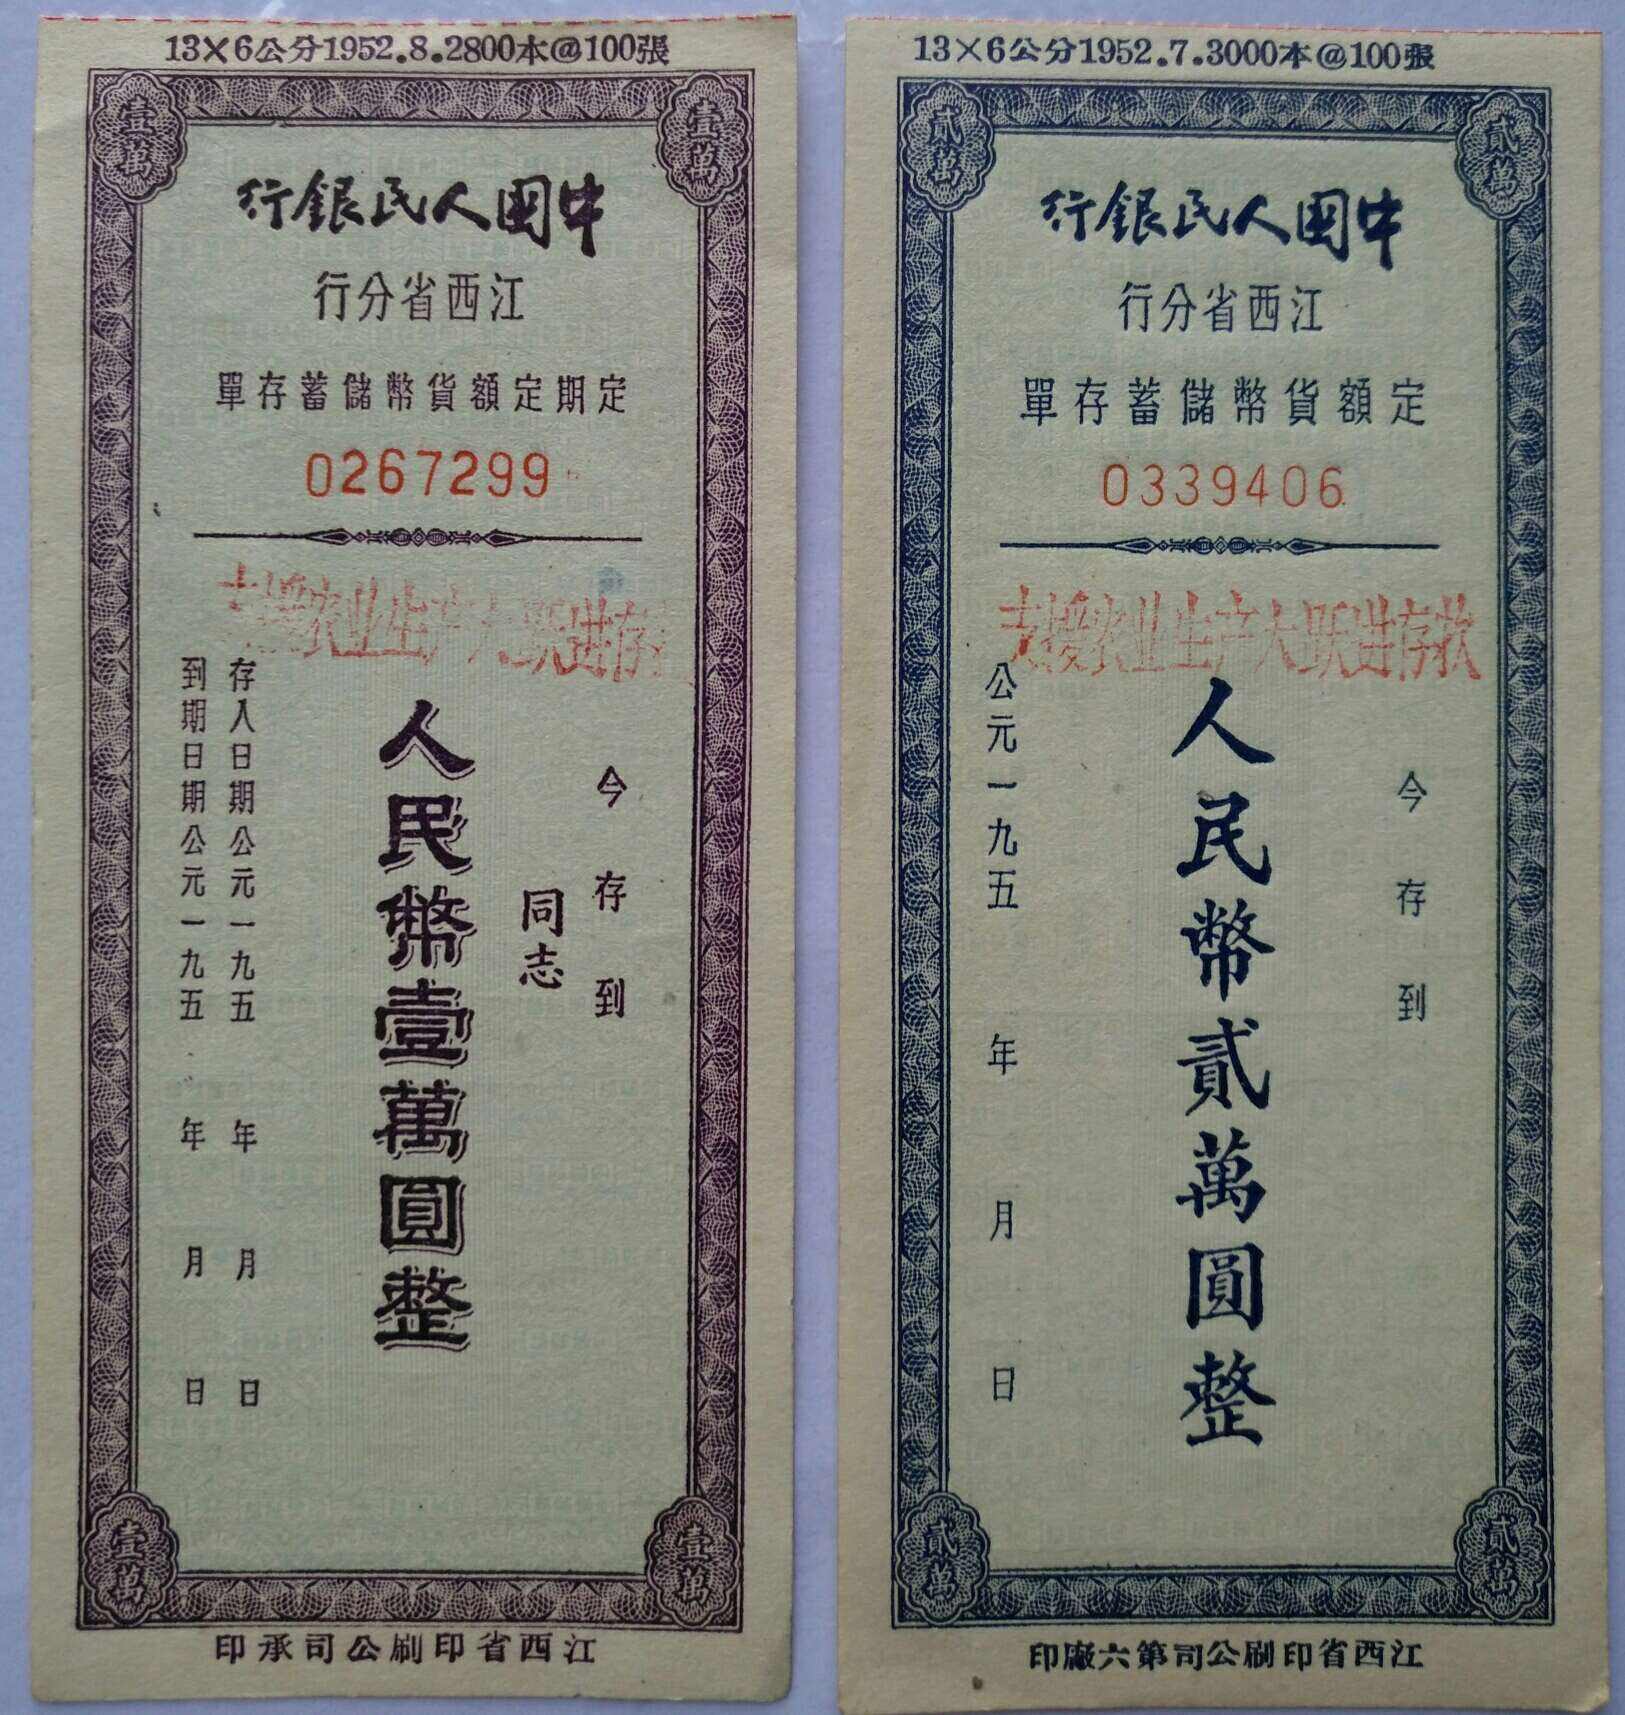 13×6公分1952.8.2800本@100張
壹萬
壹萬
中國人民銀行
江西省分行
定期定額貨幣儲蓄存單
0267299
支援农业生产大跃进存
今存到
同志
人民幣壹萬圓整
存入日期公元一九五 年 月 日
到期日期公元一九五 年 月 日
壹萬
壹萬
江西省印刷公司承印
13×6公分1952.7.3000本@100張
貳萬
貳萬
中國人民銀行
江西省分行
定額貨幣儲蓄存單
0339406
支援农业生产大跃进存款
今存到
人民幣貳萬圓整
公元一九五 年 月 日
貳萬
貳萬
江西省印刷公司第六廠印